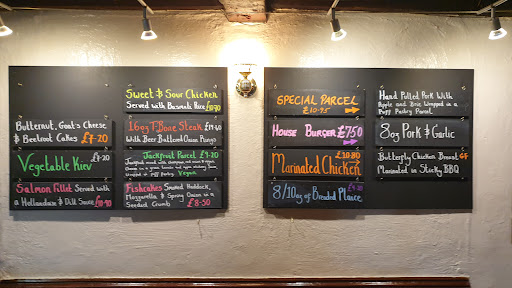 Butternut, Goat's Cheese
& Beetroot Cakes £7.20
Vegetable Kiev £7.20
Salmon Fillet Served with
a Hollandaise & Dill Sauce
Sweet & Sour Chicken
Served with Basmati Rice
16oz T-Bone Steak
With Beer Battered Onion Rings
Jackfruit Parcel £9.20
in Puff Pastry Vegan
Fishcakes Smoked Haddock,
Mozzarella & Spring Onion in a
Seeded Crumb £8-50
Special Parcel
£10.95
House Burger £7.50
£10.80
Marinated Chicken
8/10oz of Breaded Plaice
Hand Pulled Pork With
Apple and Brie Wrapped in a
Puff Pastry Parcel
8oz Pork & Garlic
Butterfly Chicken Breast GF
Marinated in Sticky BBQ